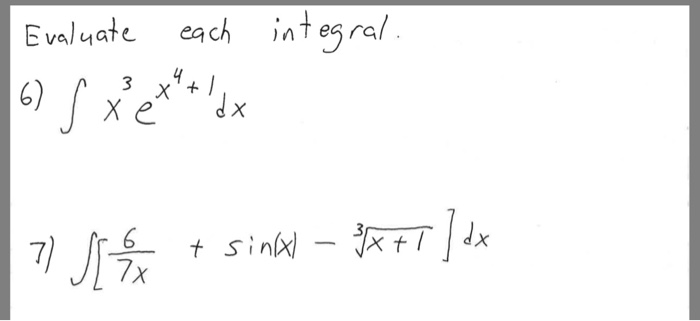 Evaluate each integral.
6) ∫ x³ e^(x⁴+1) dx
7) ∫[ 6/7x + sin(x) − ∛(x+1) ] dx